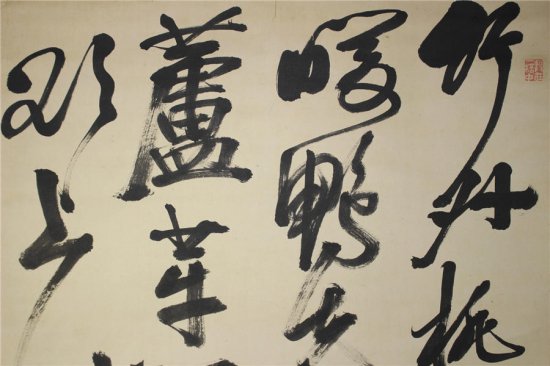 竹外桃
暖鴨先
蘆芽
欲上